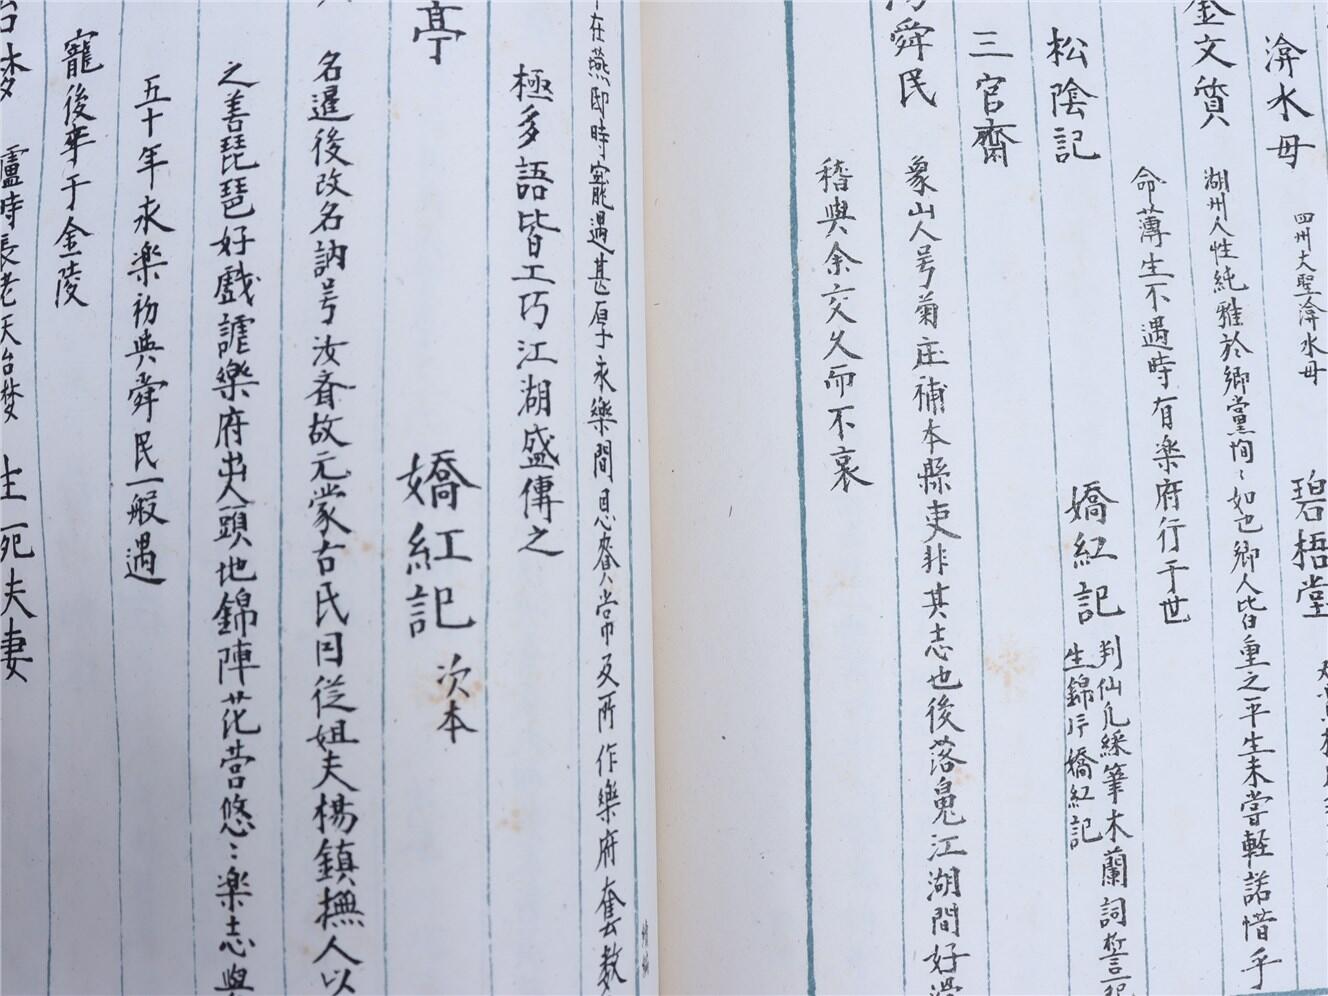 渰水母　四州大聖渰水母
碧梧堂
金文質
湖州人性純雅於鄉黨恂〻如也鄉人皆重之平生未嘗軽諾惜乎
命薄生不遇時有楽府行于世
松陰記
嬌紅記　判仙凡綵筆木蘭詞
生錦片嬌紅記
三官齋
舜民
象山人号菊庄補本縣吏非其志也後落魄江湖間好
稽與余交久而不衰
在燕邸時寵遇甚厚永樂間恩賚常及所作樂府套数
極多語皆工巧江湖盛傳之
亭
嬌紅記　次本
名暹後改名訥号汝斎故元蒙古氏因従姐夫楊鎮撫人以
之善琵琶好戲謔樂府出人頭地錦陣花营悠〻楽志與
五十年永楽初與舜民一般遇
寵後卒于金陵
盧時長老天台梦
生死夫妻